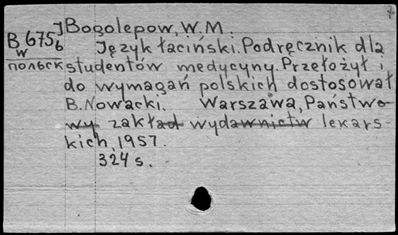 Bogolepow, W. M.
B 675b
w
польск
Język łaciński. Podręcznik dla
studentów medycyny. Przełożył i
do wymagań polskich dostosował
B. Nowacki. Warszawa, Państwo
wy zakład wydawnictw lekars-
kich, 1957.
324 s.